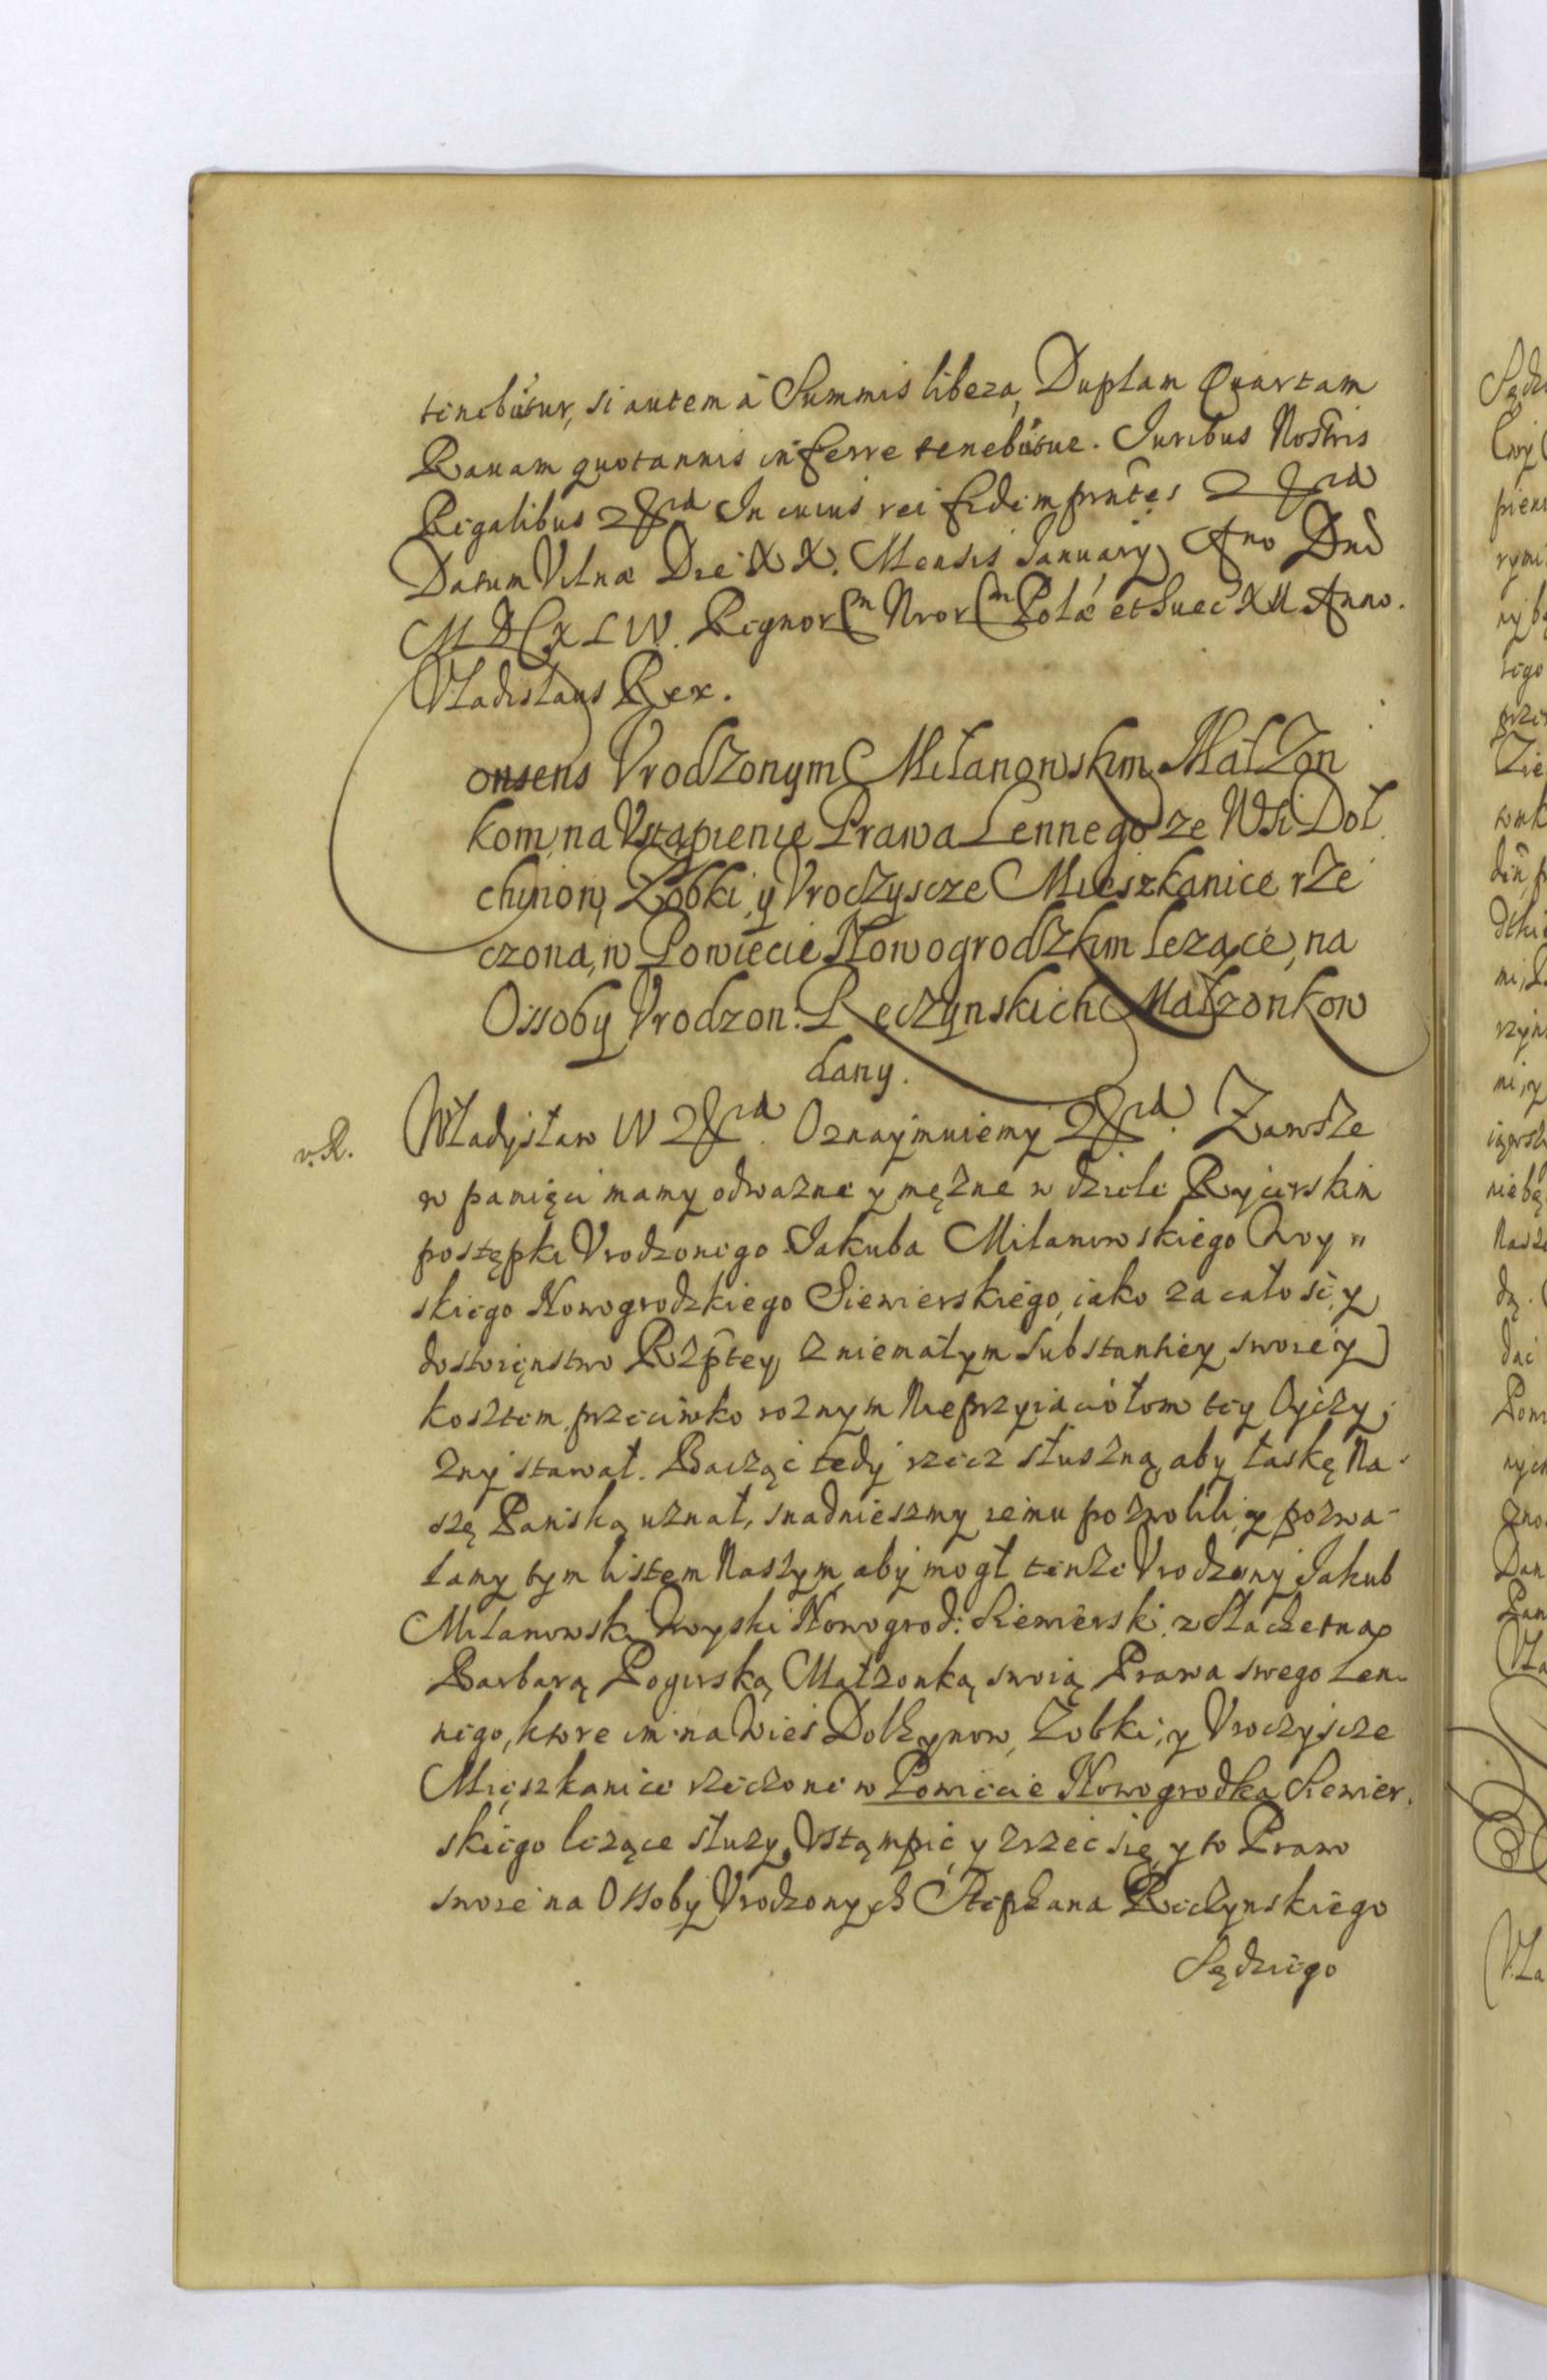 tenebitur, si autem á Summis libera, Duplam Quartam
Ravam quotannis inferre tenebitur. Iuribus Nostris
Regalibus &c In cuius rei fidem prntes &c
Datum Vilnæ Die XX. Mensis January Ano Dni
MDCXLIV. Regnorm Nrorm Polæ et Suec XII Anno.
Vladislaus Rex.
Consens Vrodzonym Miłanowskim Małzon
kom, na Vstąpienie Prawa Lennego ze Wsi Doł
chynow, Zobki, y Vroczyscze Mieszkanice rze
czona, w Powiecie Nowogrodzkim lezące, na
Ossoby Vrodzon. Reczynskich Małzonkow
dany.
v. R. Władysław IV &c. Oznaymuiemy &c. Zawsze
w pamięci mamy odwazne y męzne w dziele Rycerskim
postępki Vrodzonego Jakuba Miłanowskiego Woy"
skiego Nowogrodzkiego Siewierskiego, iako za całość, y
dostoięnstwo Rzptey z niemałym substantiey swoiey
kosztem, przeciwko roznym Nieprzyiaciołom tey Oyczy,
zny stawał. Bacząc tedy rzecz słuszną, aby łaskę Na-
szę Pańską uznał, snadnieszmy iemu pozwolili, y pozwa-
lamy tym listem Naszym, aby mogł tenze Vrodzony Jakub
Miłanowski Woyski Nowogrod: Siewierski z Slachetną
Barbarą Pogirską Małzonką swoią Prawa swego Len-
nego, ktore im na Wieś Dolhynow, Zobki, y Vroczyscze
Mięszkanice rzeczone w Powiecie Nowogrodka Siewier,
skiego lezące słuzy, Vstąmpić y zrzec się, y to Prawo
swoie na Ossoby Vrodzonych Stephana Reczynskiego
Sędziego